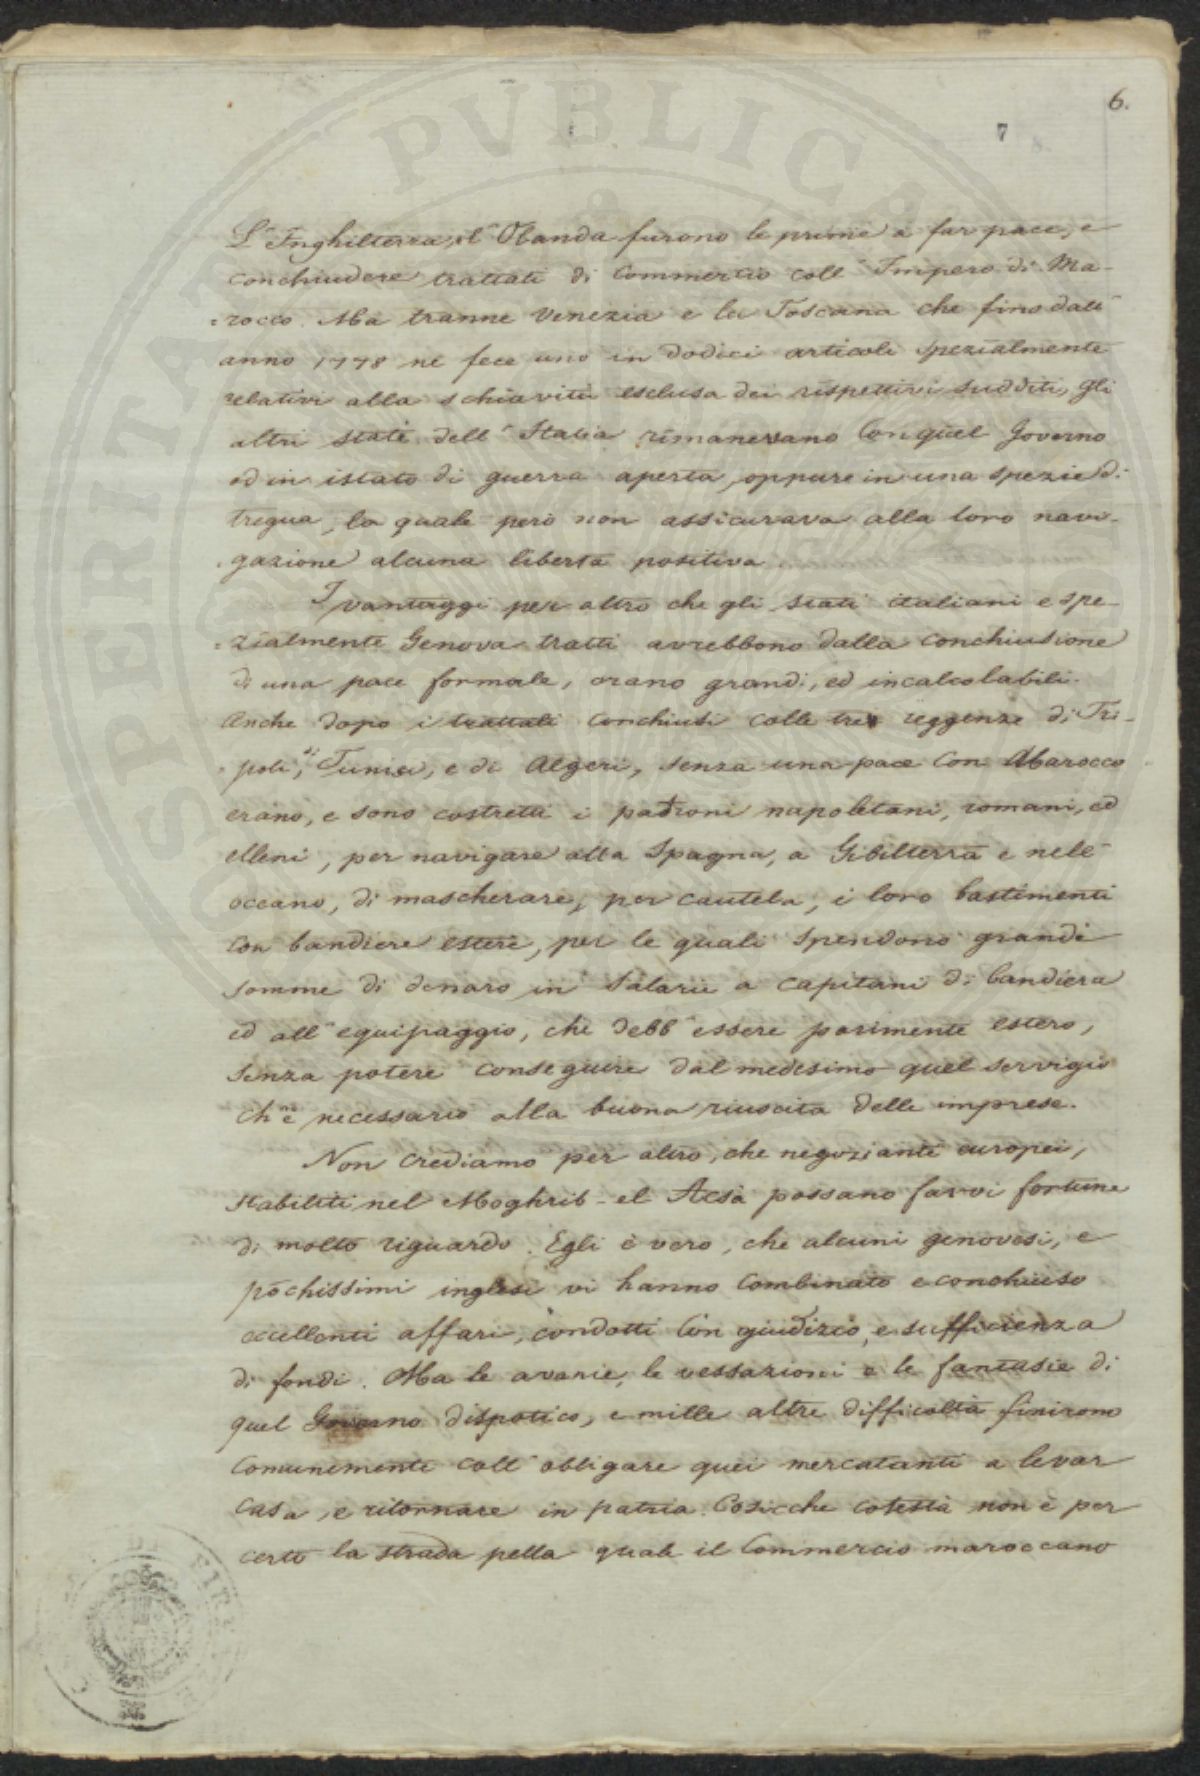 6.
7
L'Inghilterra, el'Olanda furono le prime a far pace, e
conchiudere trattati di Commercio coll'Impero di Ma-
=rocco. Ma tranne Venezia e la Toscana che fino dall'
anno 1778 ne fece uno in dodici articoli spezialmente
relativi alla schiavitù esclusa dei rispettivi sudditi, gli
altri stati dell'Italia rimanevano con quel Governo
od in istato di guerra aperta, oppure in una spezie di
tregua, la quale però non assicurava alla loro navi-
=gazione alcuna libertà positiva.
I vantaggi per altro che gli stati italiani e spe-
=zialmente Genova tratti avrebbono dalla conchiusione
di una pace formale, erano grandi, ed incalcolabili.
Anche dopo i trattati conchiusi colle tre reggenze di Tri-
=poli, di Tunisi, e di Algeri, senza una pace con Marocco
erano, e sono costretti i padroni napoletani, romani, ed
elleni, per navigare alla Spagna, a Gibilterra e nell'
oceano, di mascherare, per cautela, i loro bastimenti
con bandiere estere, per le quali spendono grandi
somme di denaro in salarii a capitani di bandiera
ed all'equipaggio, che debb'essere parimente estero,
senza potere conseguire dal medesimo quel servigio
ch'è necessario alla buona riuscita delle imprese.
Non crediamo per altro, che negozianti europei,
stabiliti nel Moghrib-el Acsà possano farvi fortune
di molto riguardo. Egli è vero, che alcuni genovesi, e
pochissimi inglesi vi hanno combinato e conchiuso
eccellenti affari, condotti con giudizio, e sufficienza
di fondi. Ma le avanie, le vessazioni e le fantasie di
quel Governo dispotico, e mille altre difficoltà finirono
comunemente coll'obbligare quei mercatanti a levar
casa, e ritornare in patria. Cosicche cotesta non è per
certo la strada pella quale il Commercio maroccano